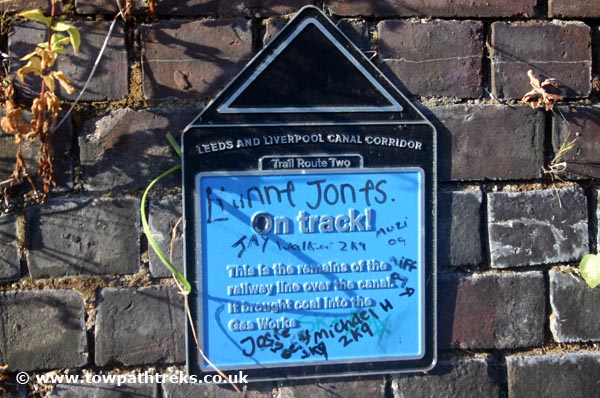 LEEDS AND LIVERPOOL CANAL CORRIDOR
Trail Route Two
Jones.
On track!
JAY Walker 2K9
This is the remains of the
railway line over the canal.
It brought coal into the
Gas Works.
Josie Michael H
2K9 2K9
© www.towpathtreks.co.uk